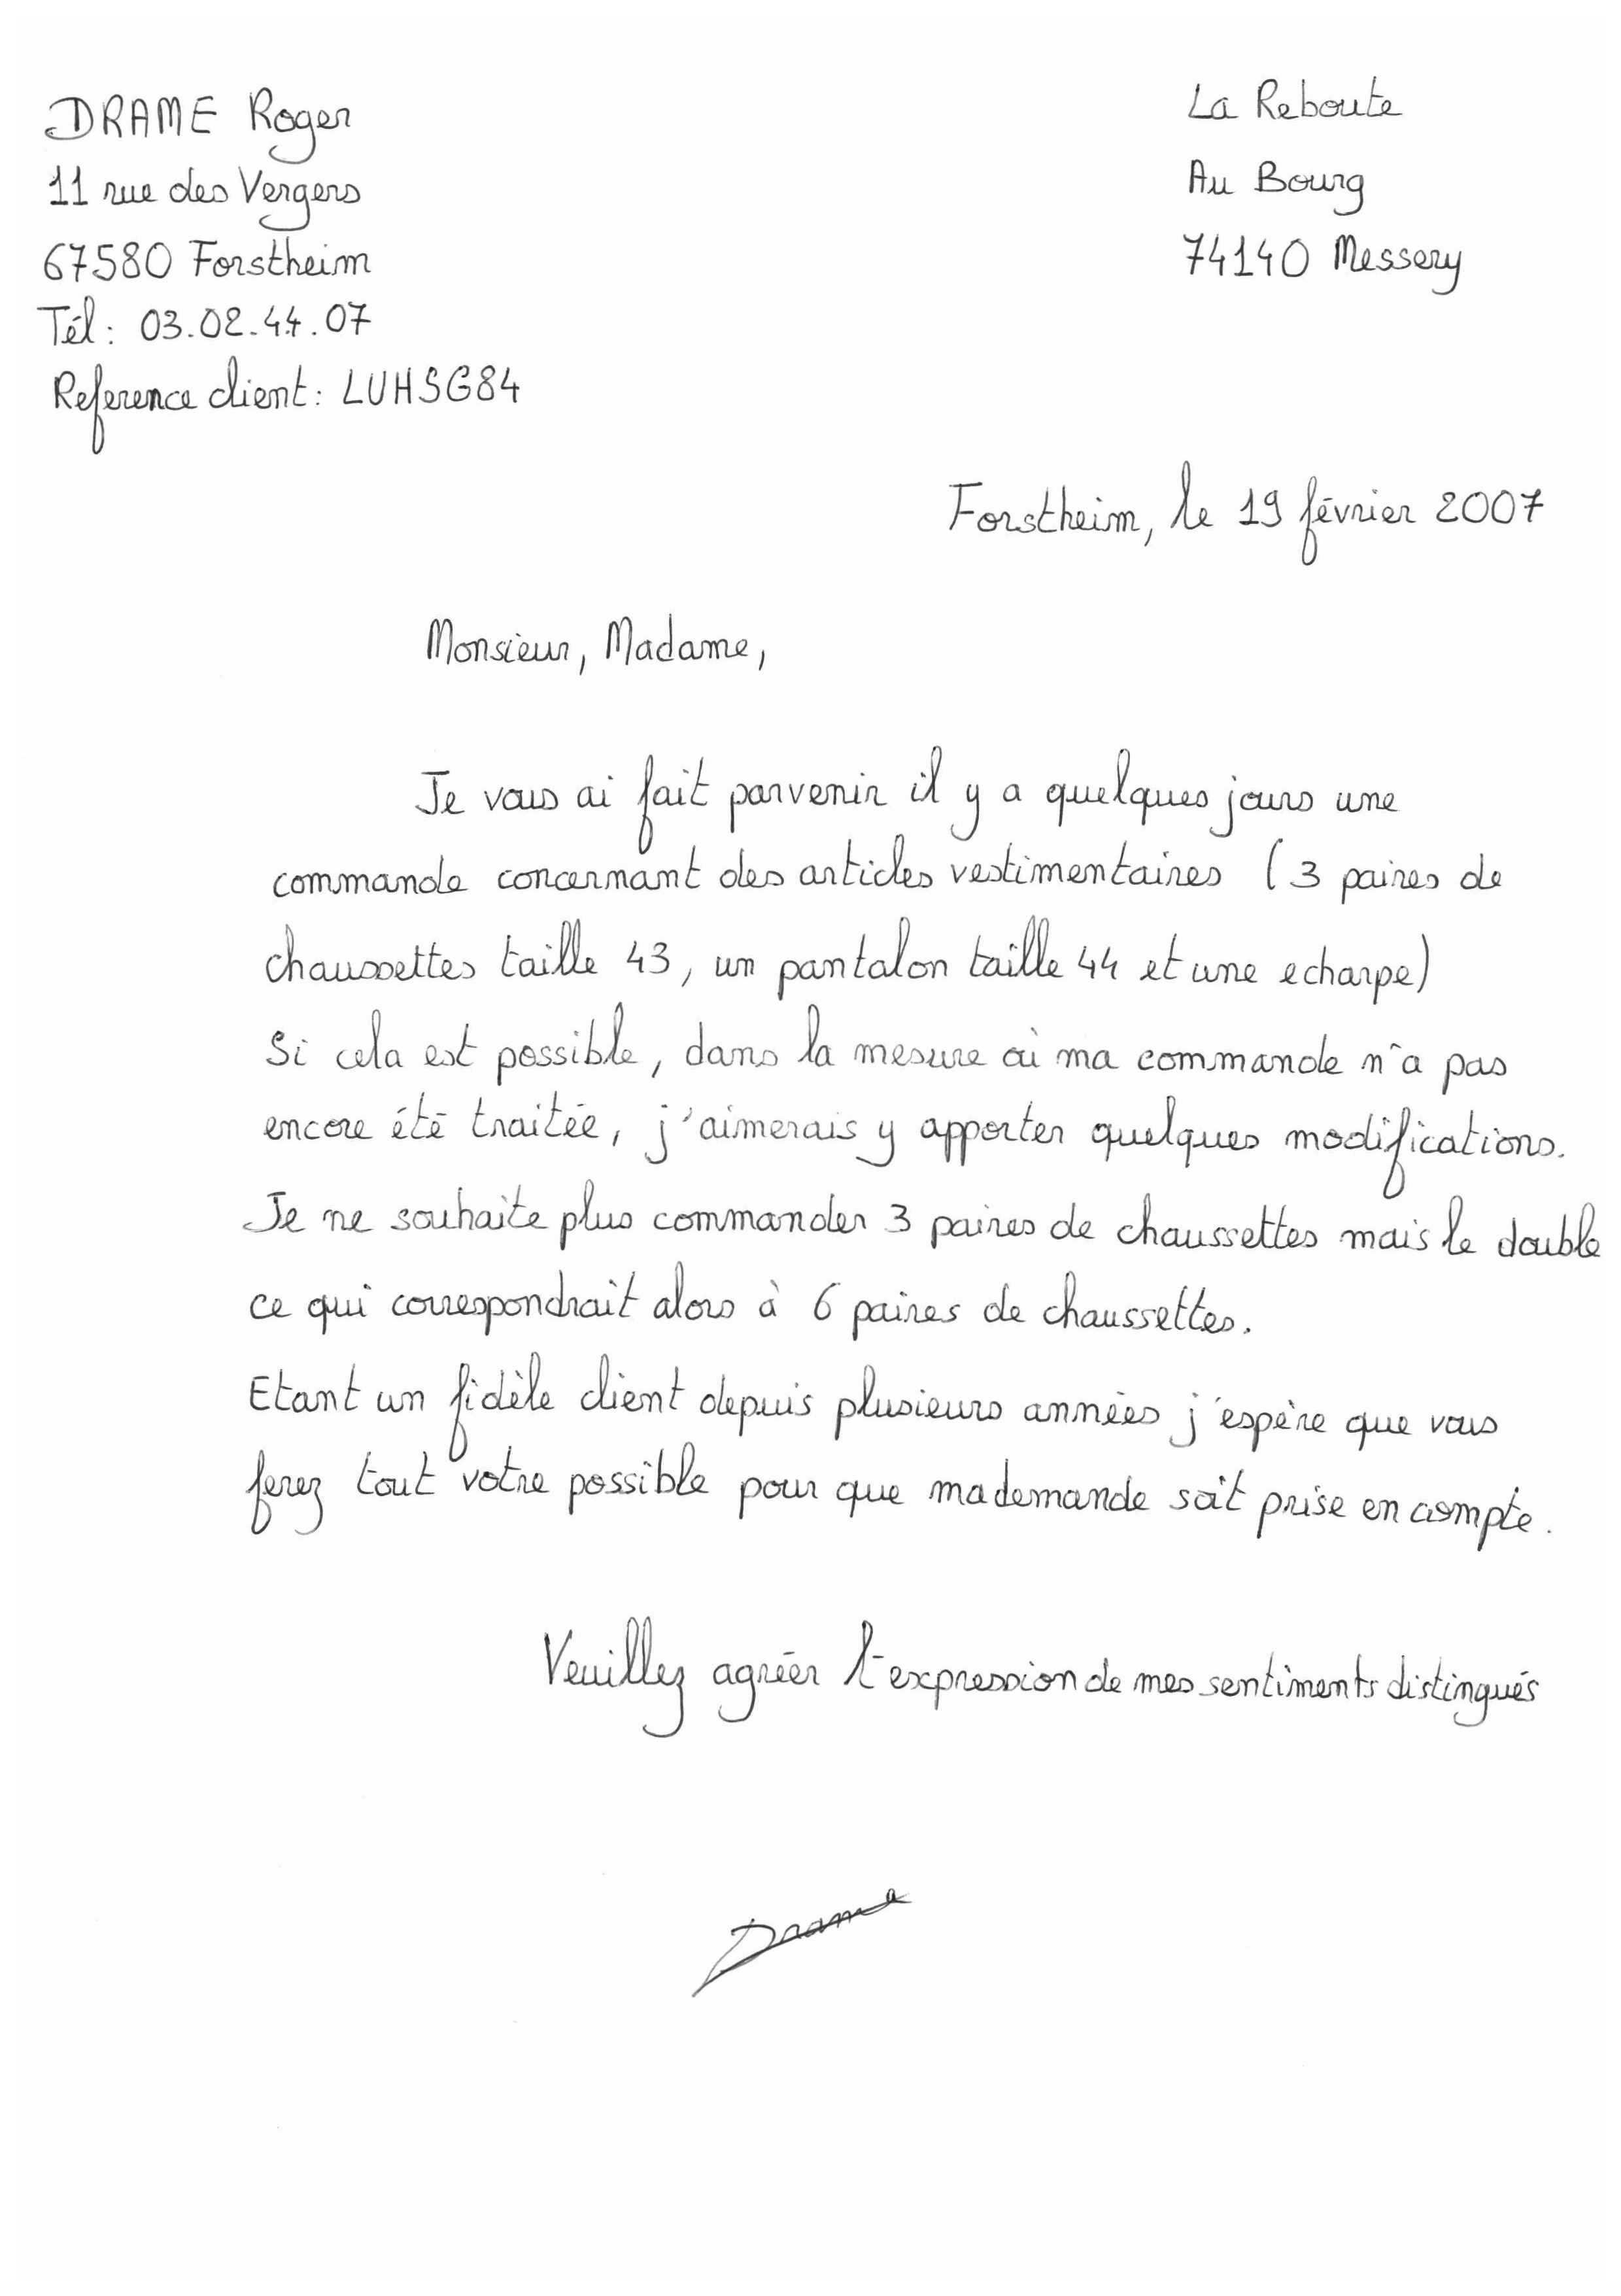 DRAME Roger
11 rue des Vergers
67580 Forstheim
Tél: 03.02.44.07
Reference client: LUHSG84
La Reboute
Au Bourg
74140 Messery
Forstheim, le 19 février 2007
Monsieur, Madame,
Je vous ai fait parvenir il y a quelques jours une
commande concernant des articles vestimentaires (3 paires de
chaussettes taille 43, un pantalon taille 44 et une echarpe)
Si cela est possible, dans la mesure où ma commande n'a pas
encore été traitée, j'aimerais y apporter quelques modifications.
Je ne souhaite plus commander 3 paires de chaussettes mais le double
ce qui correspondrait alors à 6 paires de chaussettes.
Etant un fidèle client depuis plusieurs années j'espère que vous
ferez tout votre possible pour que ma demande soit prise en compte.
Veuillez agréer l'expression de mes sentiments distingués
Drame